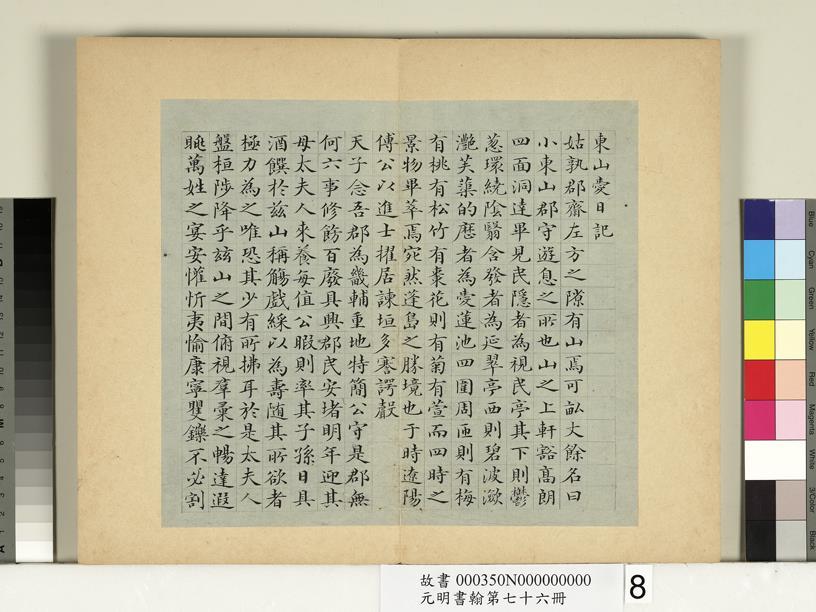 東山愛日記
姑孰郡齋左方之隙有山焉可畝大餘名曰
小東山郡守遊息之所也山之上軒豁高朗
四面洞達畢見民隱者為視民亭其下則鬱
葱環繞陰翳含發者為延翠亭西則碧波瀲
灔芙蕖的歷者為愛蓮池四圍周匝則有梅
有桃有松竹有棗花則有菊有萱而四時之
景物畢萃焉宛然蓬島之勝境也于時遼陽
傅公以進士擢居諫垣多謇諤聲
天子念吾郡為畿輔重地特簡公守是郡無
何六事修飭百廢具興郡民安堵明年迎其
母太夫人來養每值公暇則率其子孫日具
酒饌於茲山稱觴戲綵以為壽随其所欲者
極力為之唯恐其少有所拂耳於是太夫人
盤桓陟降乎茲山之間俯視羣彙之暢達遐
眺萬姓之宴安懽忻夷愉康寧矍鑠不必割
故書 000350N000000000
元明書翰第七十六冊
8
Blue
Cyan
Green
Yellow
Red
Magenta
White
3/Color
Black